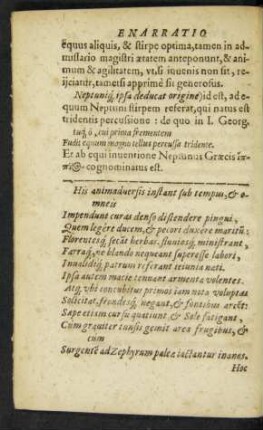 ENARRATIO
equus aliquis, & stirpe optima, tamen in ad-
missario magistri ætatem anteponunt, & ani-
mum & agilitatem, vt, si iuuenis non sit, re-
ijciatur, tametsi apprimè sit generosus.
Neptuniq́; ipsa deducat origine) id est, ad e-
quum Neptuni stirpem referat, qui natus est
tridentis percussione : de quo in I. Georg.
tuq́; ô, cui prima frementem
Fudit equum magno tellus percussa tridente.
Et ab equi inuentione Neptunus Græcis ἵπ-
πι@- cognominatus est.
His animaduersis instant sub tempus, & o-
mneis
Impendunt curas denso distendere pingui,
Quem legêre ducem, & pecori dixêre maritũ:
Florentesq́; secãt herbas, fluuiosq́; ministrant,
Farraq́;, ne blando nequeant superesse labori,
Inualidiq́; patrum referant ieiunia nati.
Ipsa autem macie tenuant armenta volentes.
Atq́;, vbi concubitus primos iam nota voluptas
Solicitat, frondesq́; negant, & fontibus arcẽt:
Sæpe etiam cursu quatiunt, & Sole fatigant,
Cum grauiter tunsis gemit area frugibus, &
cum
Surgentẽ ad Zephyrum paleæ iactantur inanes.
Hoc